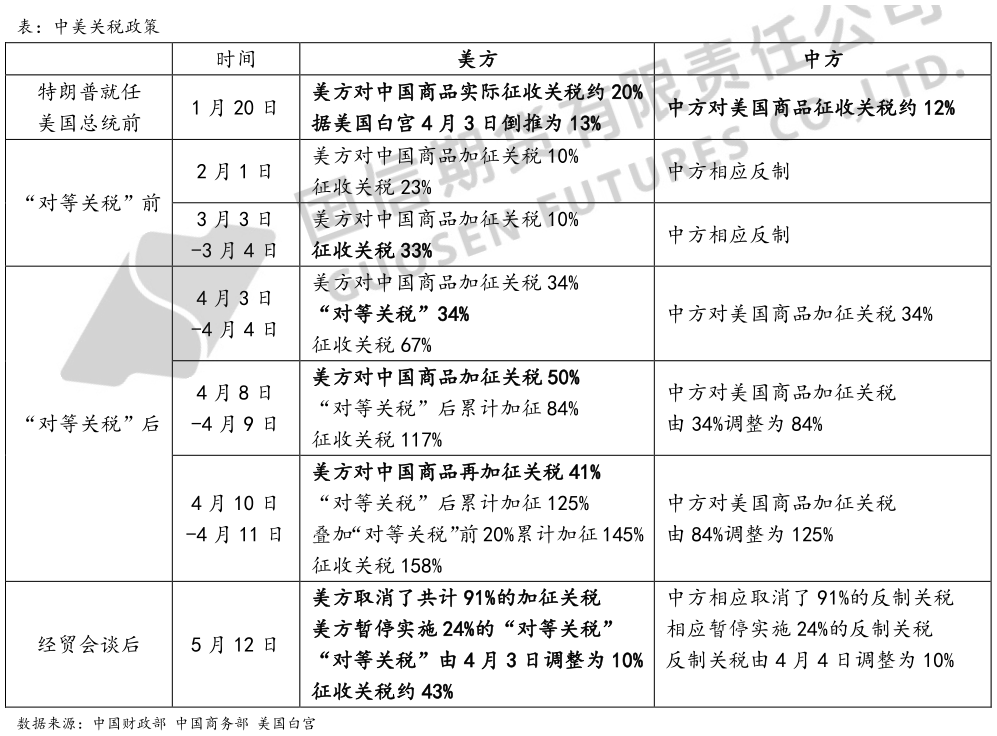 表：中美关税政策
时间
美方
中方
特朗普就任
美国总统前
1月20日
美方对中国商品实际征收关税约20%
据美国白宫4月3日倒推为13%
中方对美国商品征收关税约12%
“对等关税”前
2月1日
美方对中国商品加征关税10%
征收关税23%
中方相应反制
3月3日
-3月4日
美方对中国商品加征关税10%
征收关税33%
中方相应反制
“对等关税”后
4月3日
-4月4日
美方对中国商品加征关税34%
“对等关税”34%
征收关税67%
中方对美国商品加征关税34%
4月8日
-4月9日
美方对中国商品加征关税50%
“对等关税”后累计加征84%
征收关税117%
中方对美国商品加征关税
由34%调整为84%
4月10日
-4月11日
美方对中国商品再加征关税41%
“对等关税”后累计加征125%
叠加“对等关税”前20%累计加征145%
征收关税158%
中方对美国商品加征关税
由84%调整为125%
经贸会谈后
5月12日
美方取消了共计91%的加征关税
美方暂停实施24%的“对等关税”
“对等关税”由4月3日调整为10%
征收关税约43%
中方相应取消了91%的反制关税
相应暂停实施24%的反制关税
反制关税由4月4日调整为10%
数据来源：中国财政部 中国商务部 美国白宫
国信期货有限责任公司
GUOSEN FUTURES CO.,LTD.